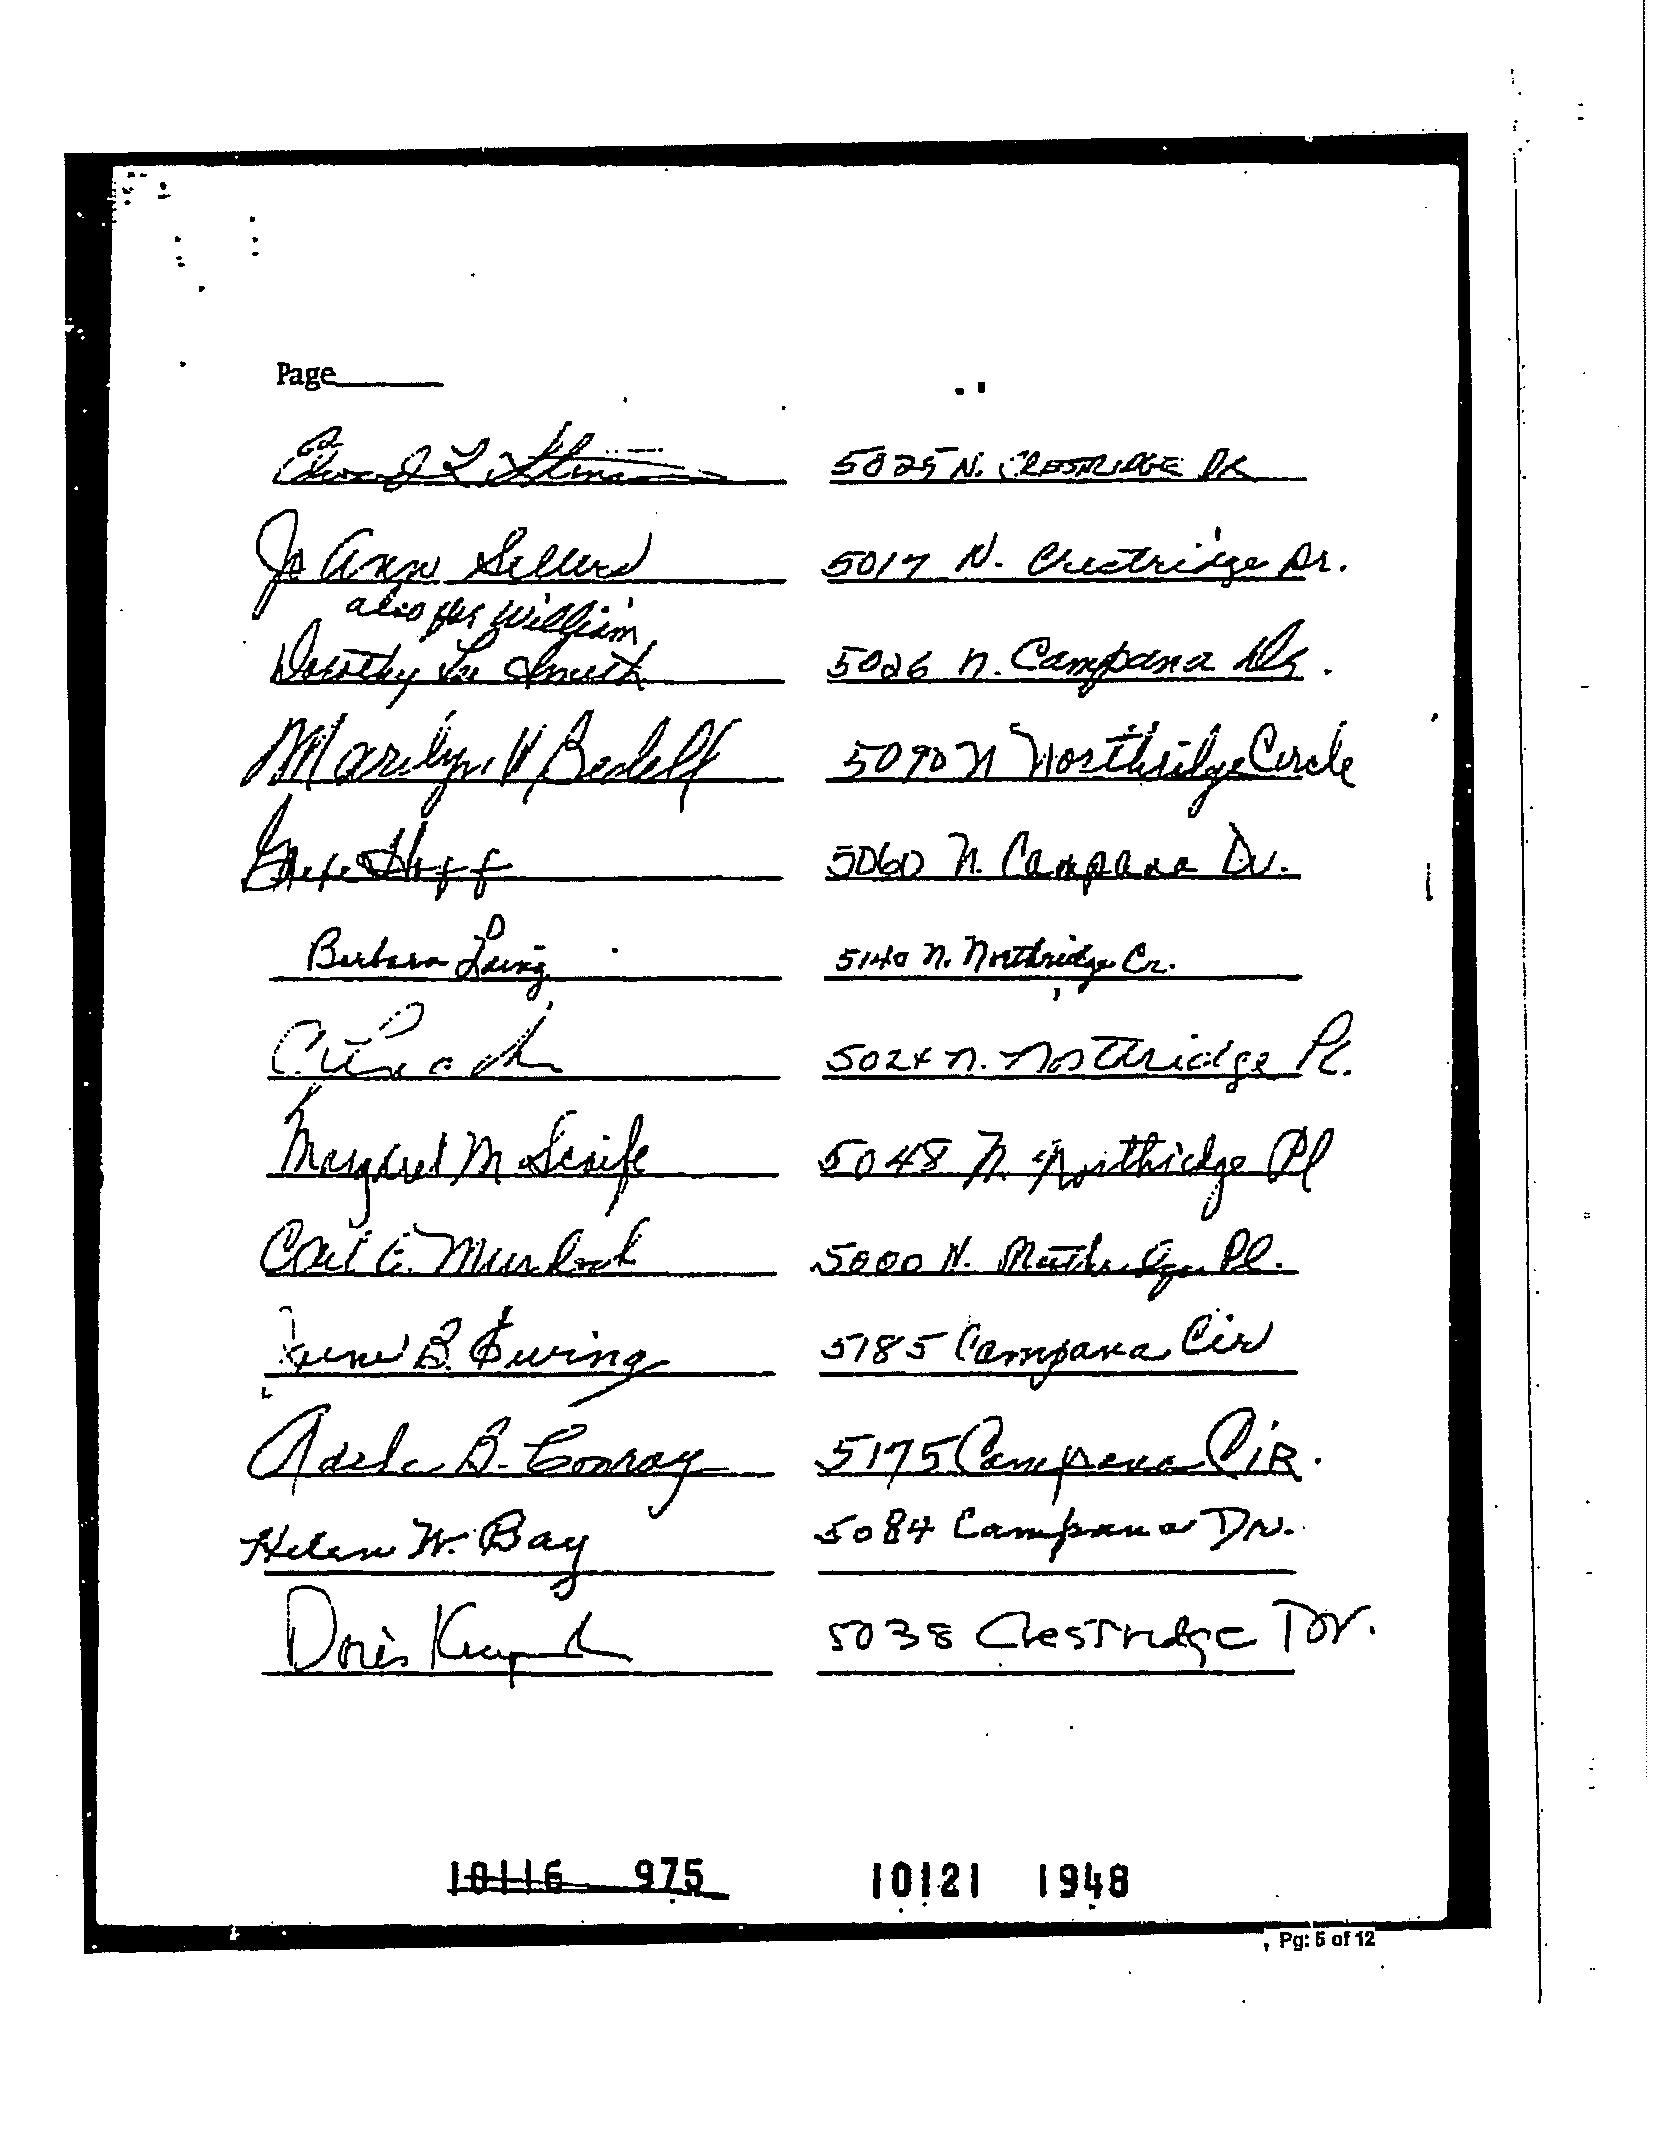 Page
Edward L. 5025 N. CRESTRIDGE DR
Jo Ann Sellers 5017 N. Crestridge Dr.
also for William
Dorothy Lee Smith 5026 N. Campana Dr.
Marilyn W Bedell 5090 N Northridge Circle
Hoff 5060 N. Campana Dr.
Barbara Laing 5140 N. Northridge Cr.
C. 5024 N. Northridge Pl.
Margaret M Scaife 5048 N. Northridge Pl
Gail E. Murdock 5000 N. Northridge Pl.
Irene B. Ewing 5185 Campana Cir
Adele B. Conray 5175 Campana CiR.
Helen W. Bay 5084 Campana Dr.
Doris 5038 Crestridge Dr.
10116 975 10121 1948
Pg: 5 of 12